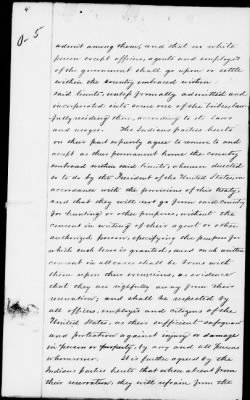 0-5
admit among them; and that no white
person except officers, agents and employés
of the government shall go upon or settle
within the country embraced within
said limits, unless formally admitted and
incorporated into some one of the tribes, law-
fully residing there, according to its laws
and usages. The Indians parties hereto
on their part expressly agree to remove to and
accept as their permanent home the country
embraced within said limits, whenever directed
so to do by the President of the United States, in
accordance with the provisions of this treaty,
and that they will not go from said country
for hunting or other purposes, without the
consent in writing of their agent or other
authorized person, specifying the purpose for
which such leave is granted; and such written
consent in all cases shall be borne with
them upon their excursions, as evidence
that they are rightfully away from their
reservation; and shall be respected by
all officers, employés and citizens of the
United States, as their sufficient safeguard
and protection against injury or damage
in person or property, by any and all persons
whomsoever. It is further agreed by the
Indian parties hereto that when absent from
their reservation, they will refrain from the